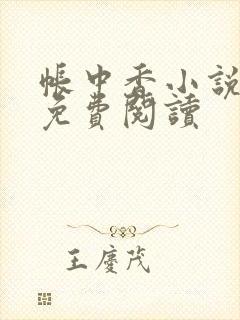 帳中香小說
免費閱讀
王慶茂